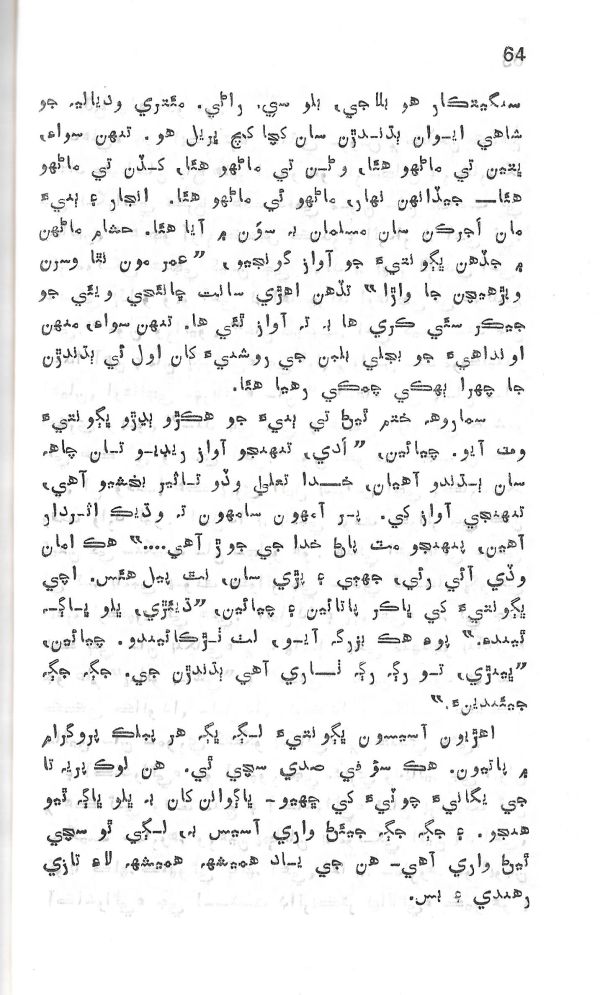 64
سنگيتڪار هو بلاجي، بلو سي. راڻي. مئٽري وديالیہ جو
شاهي ايوان ٻڌندڙن سان کچا کچ ڀريل هو. تنهن سواءِ،
ڀتين تي ماڻهو هئا، وڻن تي ماڻهو هئا، کڏن تي ماڻهو
هئا— جيڏانهن نهار، ماڻهو ئي ماڻهو هئا. انڃار ۽ ٻنيءَ
مان اَجرڪن سان مسلمان بہ سوَن ۾ آيا هئا. حشام ماڻهن
۾ جڏهن ڀڳونتيءَ جو آواز گونجيو، ”عمر مون نٿا وسرن
ويڙهيچن جا واڙا“ تڏهن اهڙي سانت ڇانئجي ويئي جو
جيڪر سئي ڪري ها بہ تہ آواز ٿئي ها. تنهن سواءِ، منهن
اونداهيءَ جو بجلي بلبن جي روشنيءَ کان اول ئي ٻڌندڙن
جا چهرا ٻهڪي چمڪي رهيا هئا.
سماروهہ ختم ٿيڻ تي ٻنيءَ جو هڪڙو ٻڍڙو ڀڳونتيءَ
وٽ آيو. چيائين، ”اَدي، تنهنجو آواز ريڊيو تان چاهہ
سان ٻڌندو آهيان، خدا تعليٰ وڏو تاثير بخشيو آهي،
تنهنجي آواز کي. پر آمهون سامهون تہ وڌيڪ اثردار
آهين، پنهنجو مٽ پاڻ خدا جي جوڙ آهي....“ هڪ امان
وڏي آئي رئي، جهجي ۽ پڙي سان، نٽ پيل هئس. اچي
ڀڳونتيءَ کي ڀاڪر پاتائين ۽ چيائين، ”ڌيئڙي، ڀلو ڀاڳہ
ٿيندءِ.“ پوءِ هڪ بزرگہ آيو، لٺ لڙڪائيندو. چيائين،
”ڀيڻڙي، تو رڳہ رڳہ ٺاري آهي ٻڌندڙن جي. جڳہ جڳہ
جيئندينءَ.“
اهڙيون آسيسون ڀڳونتيءَ لڳہ ڀڳہ هر پبلڪ پروگرام
۾ پاتيون. هڪ سؤ في صدي سچي ٿي. هن لوڪ پريہ تا
جي يگانيءَ چوٽيءَ کي ڇهيو— ڀاڳوانن کان بہ ڀلو ڀاڳہ ٿيو
هنجو. ۽ جڳہ جڳہ جيئڻ واري آسيس بہ، لڳي ٿو سچي
ٿيڻ واري آهي— هن جي ياد هميشہ هميشہ لاءِ تازي
رهندي ۽ بس.